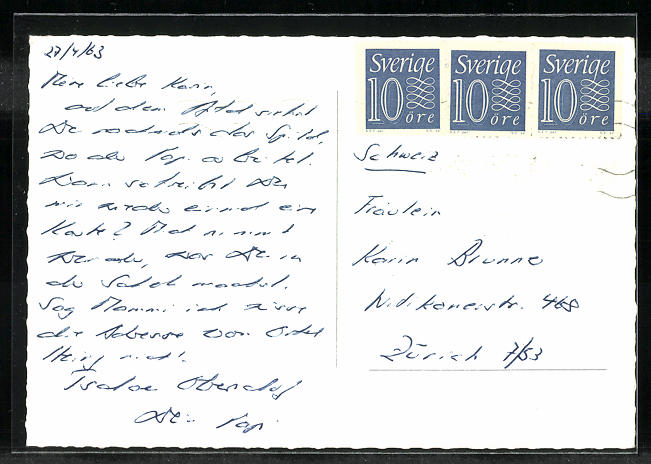 27/4/63
Meine liebe Karin,
auf dem Bild siehst
Du nochmals das Spital,
wo der Papi arbeitet.
Wann schreibst Du
mir wieder einmal eine
Karte? Mich nimmt
wunder, was Du in
der Schule machst.
Sag Mammi ich wisse
die Adresse von Onkel
nicht.
Tschau
Dein Papi
Sverige
10 öre
Sverige
10 öre
Sverige
10 öre
Schweiz
Fräulein
Karin Brunner
468
Zürich 7/53